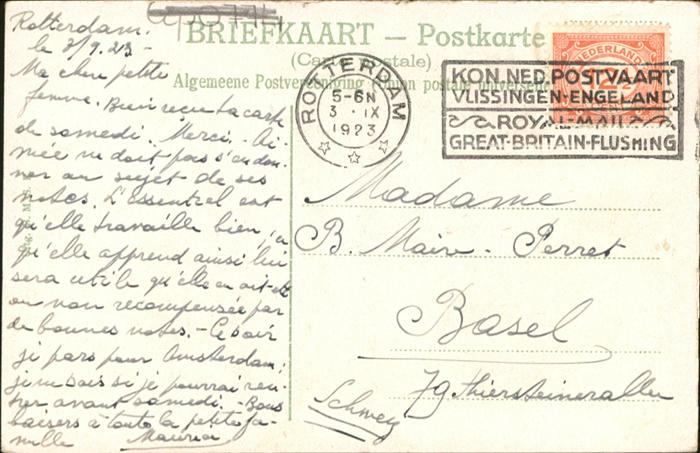 Rotterdam.
le 3/9.23 -
BRIEFKAART — Postkarte
(Carte postale)
Algemeene Postvereeniging (Union postale universelle)
Ma chère petite
femme. Bien reçu ta carte
de samedi. Merci. Ai-
mée ne doit pas s'éton-
ner au sujet de ses
notes. L'essentiel est
qu'elle travaille bien,
qu'elle apprend ainsi lui
sera utile qu'elle en ait été
ou non recompensée par
de bonnes notes. - Ce soir
je pars pour Amsterdam;
je ne sais si je pourrai ren-
trer avant samedi. - Bons
baisers à toute la petite fa-
mille Maurice
ROTTERDAM
5-6N
3 IX
1923
NEDERLAND
12½
KON. NED. POSTVAART
VLISSINGEN-ENGELAND
ROYAL-MAIL
GREAT-BRITAIN-FLUSHING
Madame
B. Maire-Perret
Basel
79 Thiersteinerallee
Schweiz